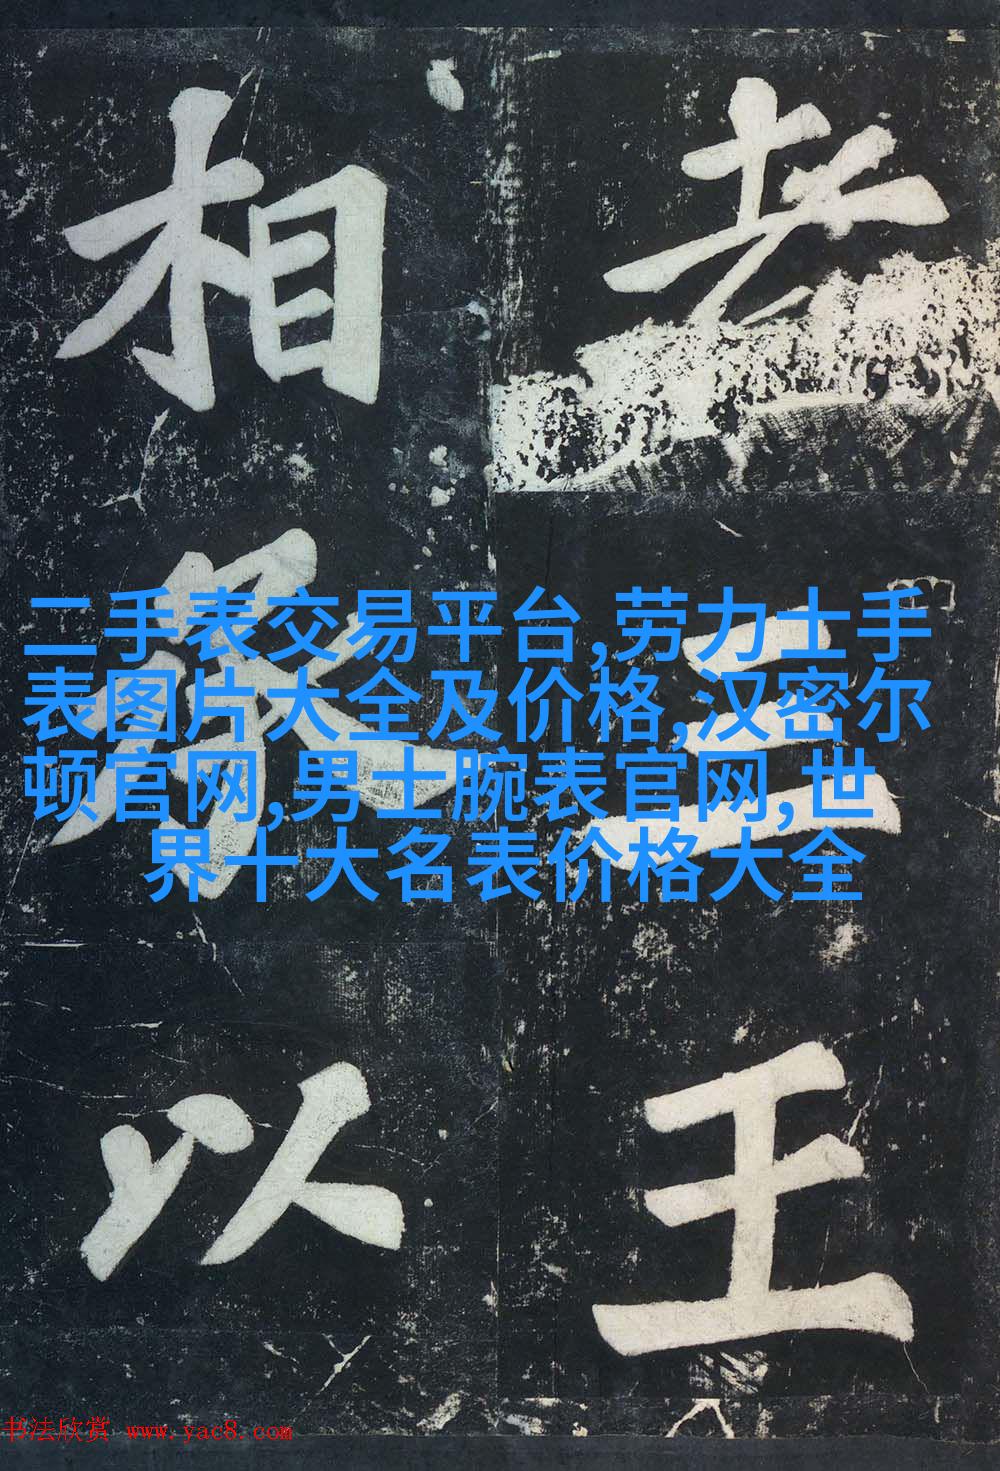 三王
相以
二手表交易平台,劳力士手
表图片大全及价格,汉密尔
顿官网,男士腕表官网,世
界十大名表价格大全
书法欣赏 www.yac8.com